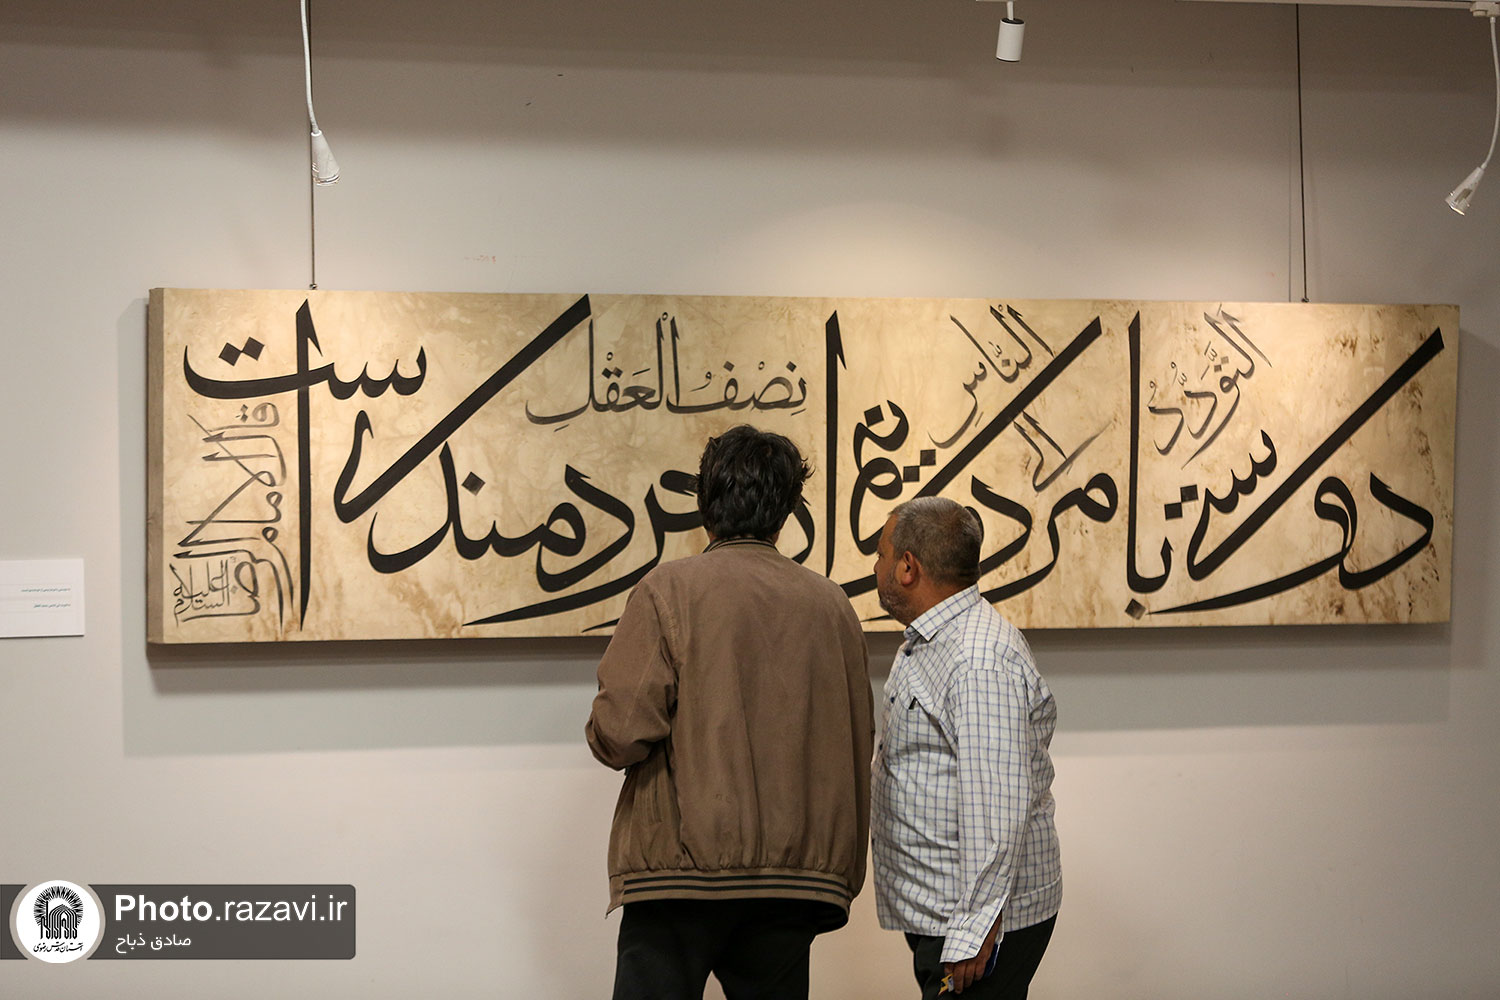 التَّوَدُّدُ إلَی النَّاسِ نِصْفُ الْعَقْلِ
دوستی با مردم نیمی از خردمندی است
قال الامام الرضا
علیه السلام
Photo.razavi.ir
صادق ذباح
آستان قدس رضوی